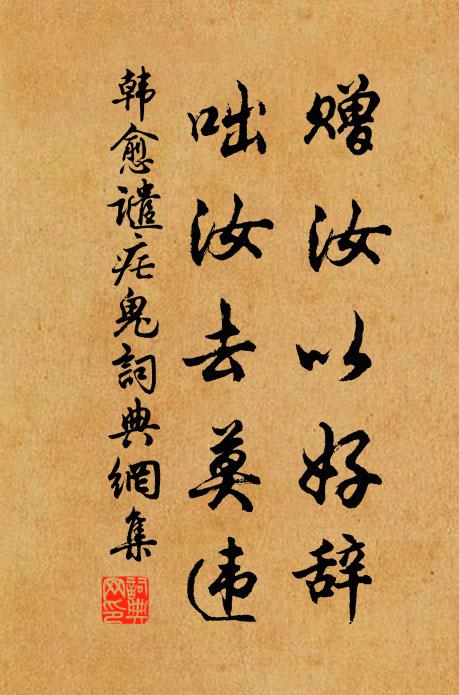 赠汝以好辞
咄汝去莫违
韩愈谴疟鬼詞典網集
詞典网印